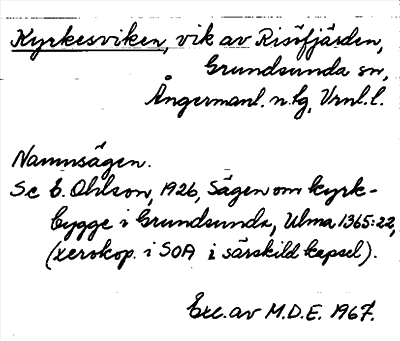 Kyrkesviken, vik av Risöfjärden,
Grundsunda sn,
Ångermanl. n. tg, Vrnl. l.
Namnsägen.
Se E. Ohlson, 1926, Sägen om kyrk-
bygge i Grundsunda, Ulma 1365:22,
(xerokop. i SOA i särskild kapsel).
Exc. av M.D.E. 1967.